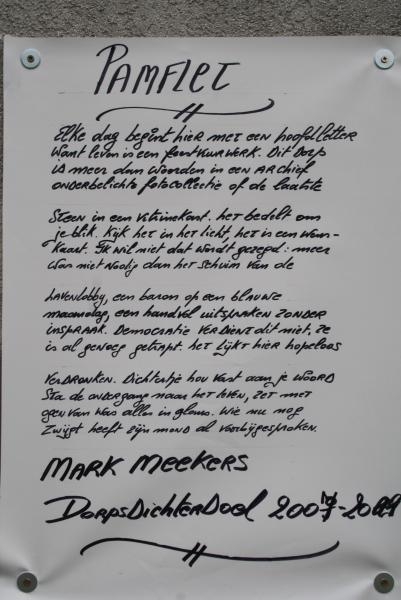 PAMFLET
Elke dag begint hier met een hoofdletter
want leven is een feestvuurwerk. Dit dorp
is meer dan woorden in een archief
onderbelichte fotocollectie of de laatste
Steen in een vitrinekast. Het bedelt om
je blik. Kijk het in het licht, het is een wens-
kaart. Ik wil niet dat wordt gezegd: meer
was niet nodig dan het schuim van de
havenlobby, een baron op een blauwe
maandag, een handvol uitspraken zonder
inspraak. Democratie verdient dit niet, ze
is al genoeg getrapt. Het lijkt hier hopeloos
verdronken. Dichtertje hou vast aan je woord
Sta de ondergang naar het leven, zet met
een van was alles in glans. Wie nu nog
zwijgt heeft zijn mond al voorbijgesproken.
MARK MEEKERS
DorpsDichterDoel